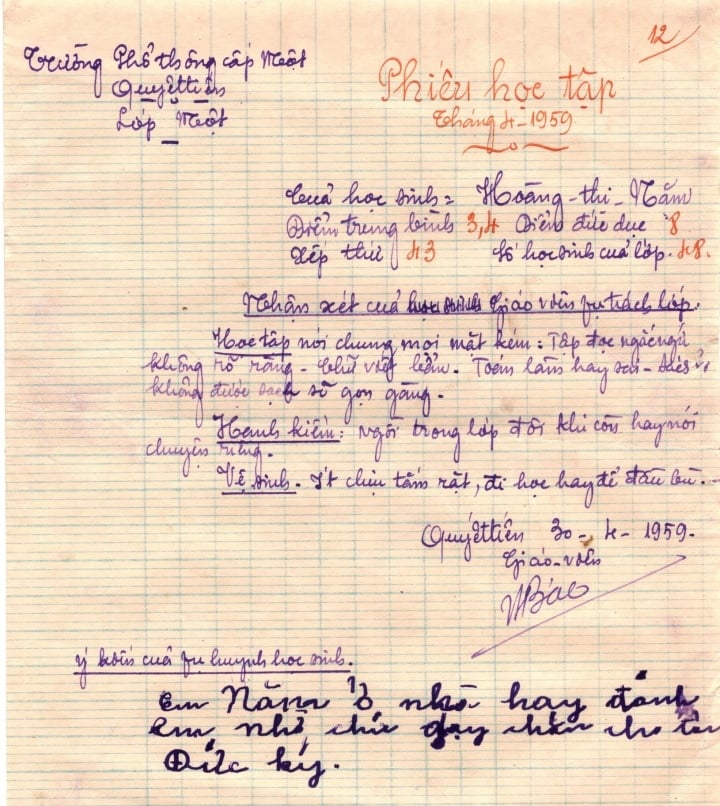 12
Trường Phổ thông cấp Một
Quyết tiến
Lớp Một
Phiếu học tập
Tháng 4-1959
Của học sinh = Hoàng-thị-Năm
Điểm trung bình 3,4 Điểm đức dục 8
Xếp thứ 43 Số học sinh của lớp. 48.
Nhận xét của học sinh Giáo viên fụ trách lớp.
Học tập nói chung mọi mặt kém: Tập đọc ngắc ngứ
không rõ ràng - Chữ viết bẩn. Toán làm hay sai -
không được sạch sẽ gọn gàng.
Hạnh kiểm: Ngồi trong lớp đôi khi còn hay nói
chuyện riêng.
Vệ sinh. Ít chịu tắm rặt, đi học hay để đầu bù.
Quyết tiến 30-4-1959.
Giáo-viên
ý kiến của fụ huynh học sinh.
Em Năm ở nhà hay đánh
em nhờ chú dạy cho
Đức ký.